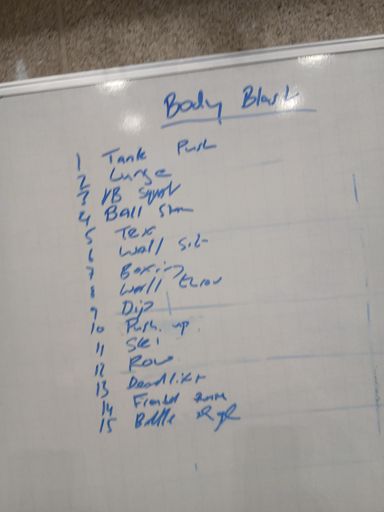 Body Blast
1 Tank Push
2 Lunge
3 VB Squat
4 Ball Slam
5 TRX
6 Wall Sit
7 Boxing
8 Wall throw
9 Dip
10 Push up
11 Ski
12 Row
13 Deadlift
14 
15 Battle